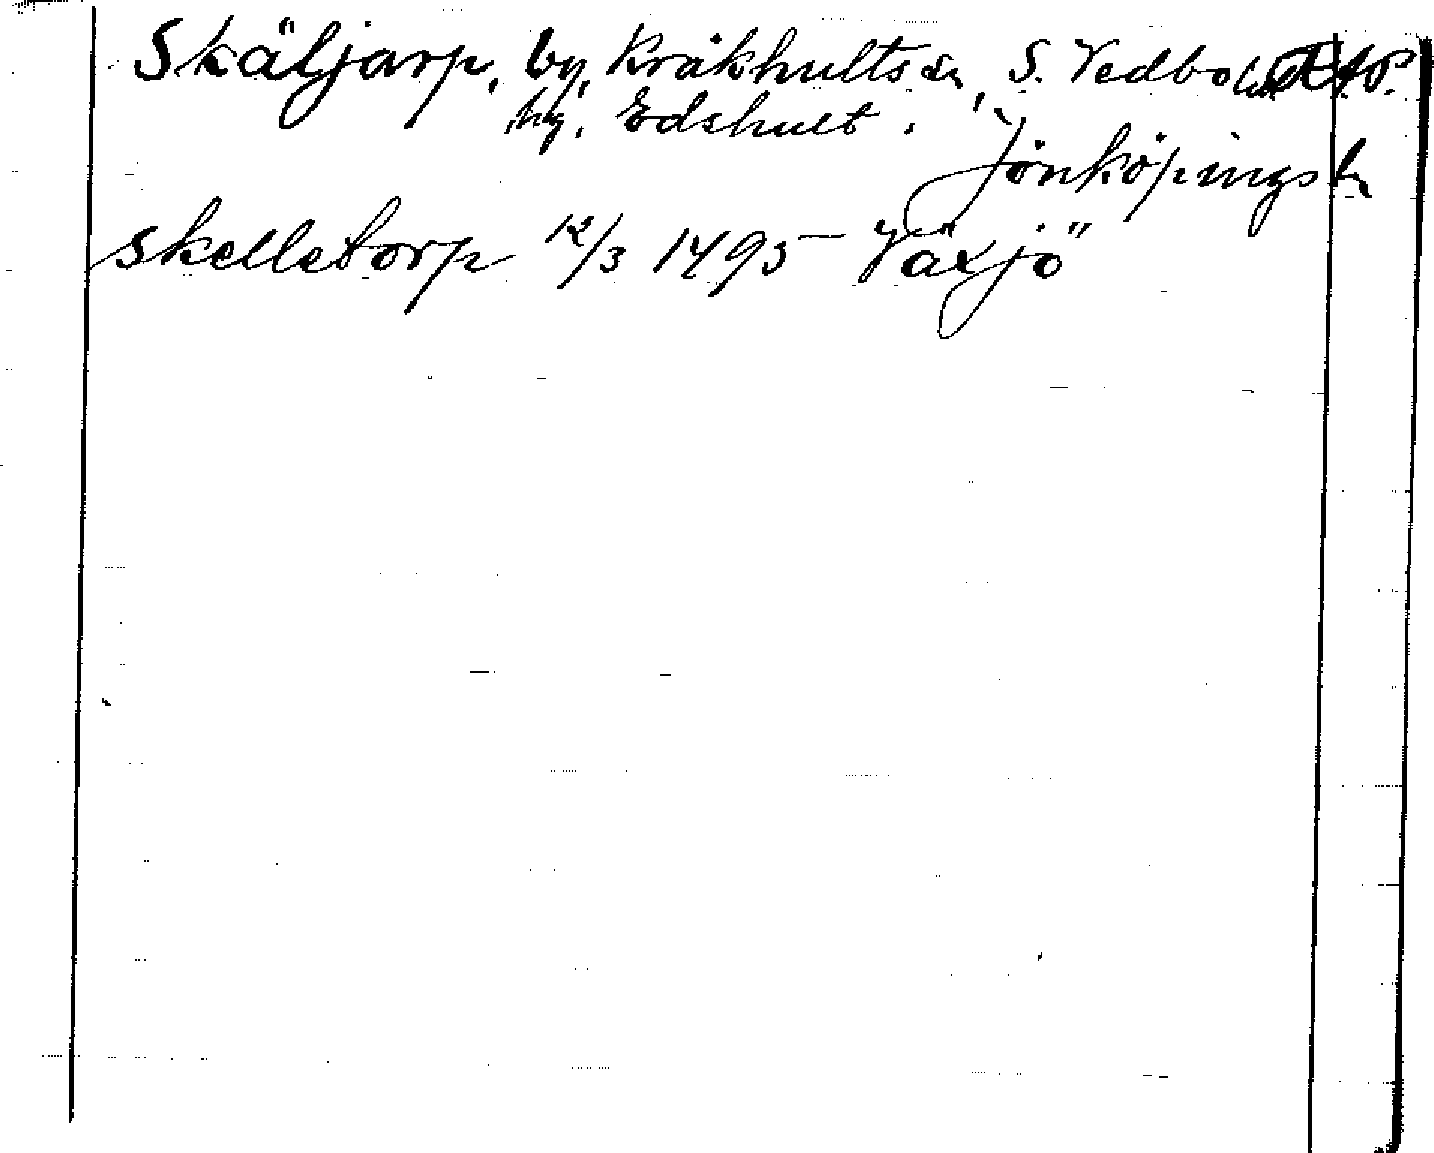 Skäljarp, by, Kråkhults sn, S. Vedbo hd
hg. Edshult.
Jönköpings l.
Skelletorp 12/3 1495 Växjö"